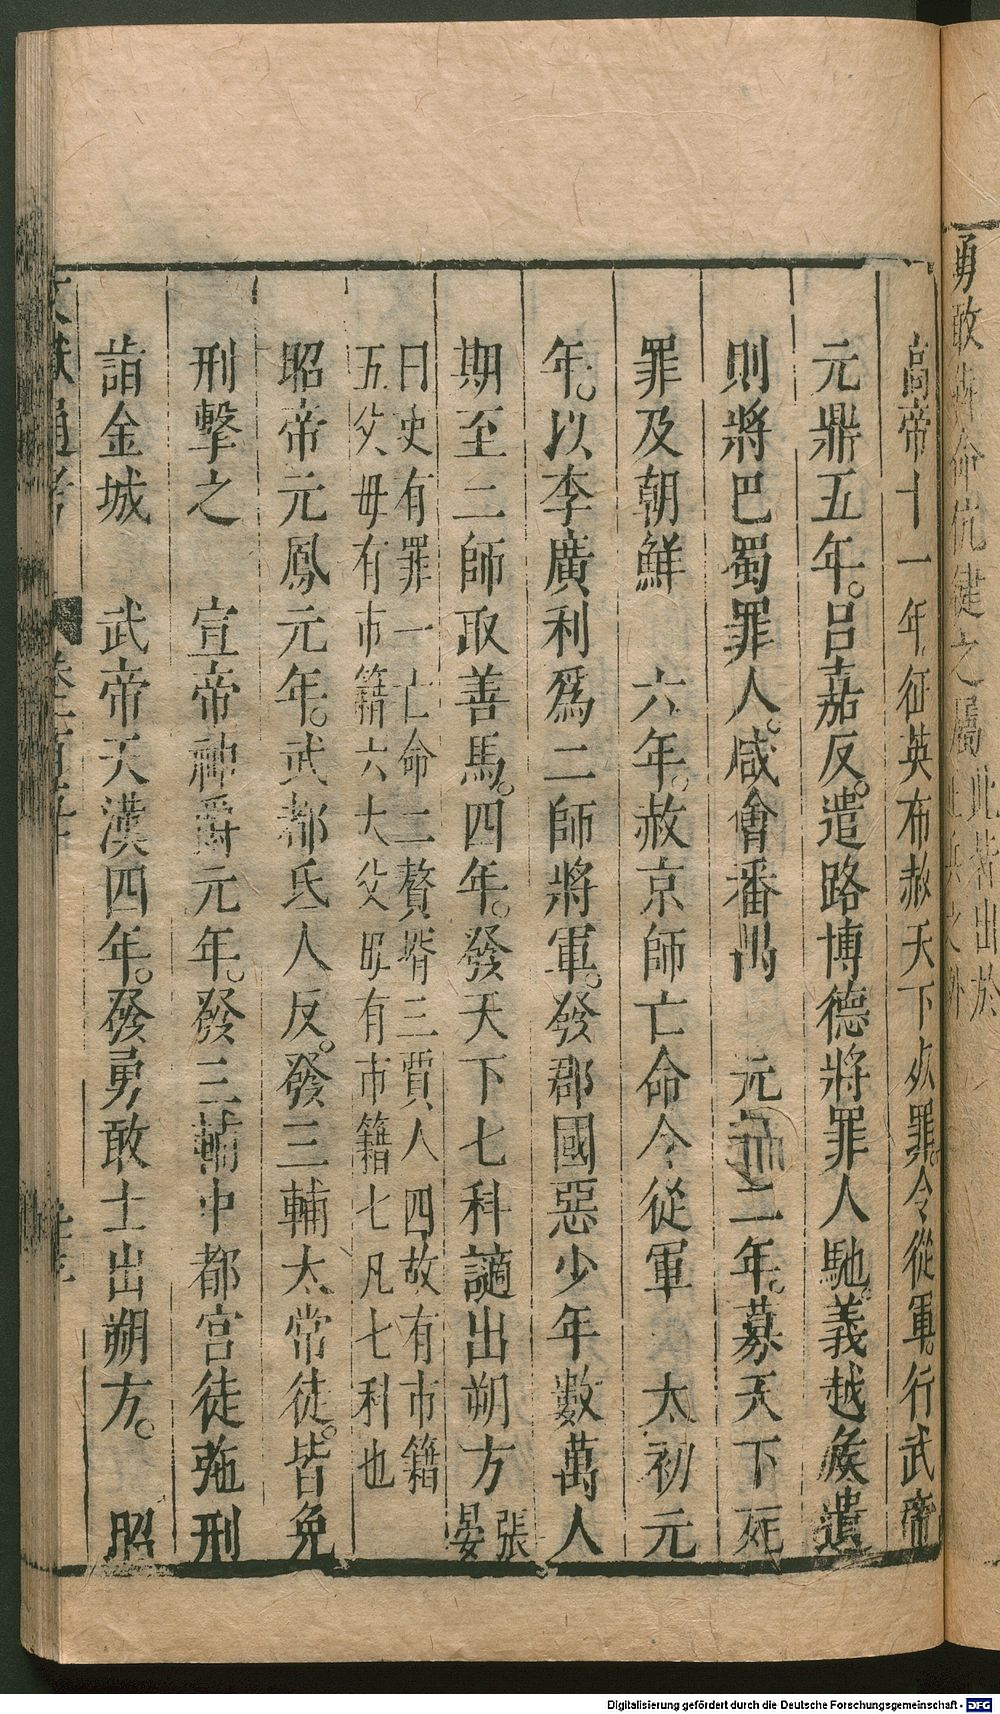 勇敢犇命伉健之屬
此皆出於
正兵之外
高帝十一年征英布赦天下死罪令從軍行武帝
元鼎五年呂嘉反遣路博德將罪人馳義越矦遣
則將巴蜀罪人咸會番禺 元封二年募天下死
罪及朝鮮 六年赦京師亡命令從軍 太初元
年以李廣利爲二師將軍發郡國惡少年數萬人
期至二師取善馬四年發天下七科謫出朔方
張
晏
曰史有罪一亡命二贅壻三賈人四故有市籍
五父毋有市籍六大父毋有市籍七凡七科也
昭帝元鳳元年武都氐人反發三輔太常徒皆免
刑擊之 宣帝神爵元年發三輔中都官徒弛刑
詣金城 武帝天漢四年發勇敢士出朔方 昭
文獻通考
Digitalisierung gefördert durch die Deutsche Forschungsgemeinschaft - DFG